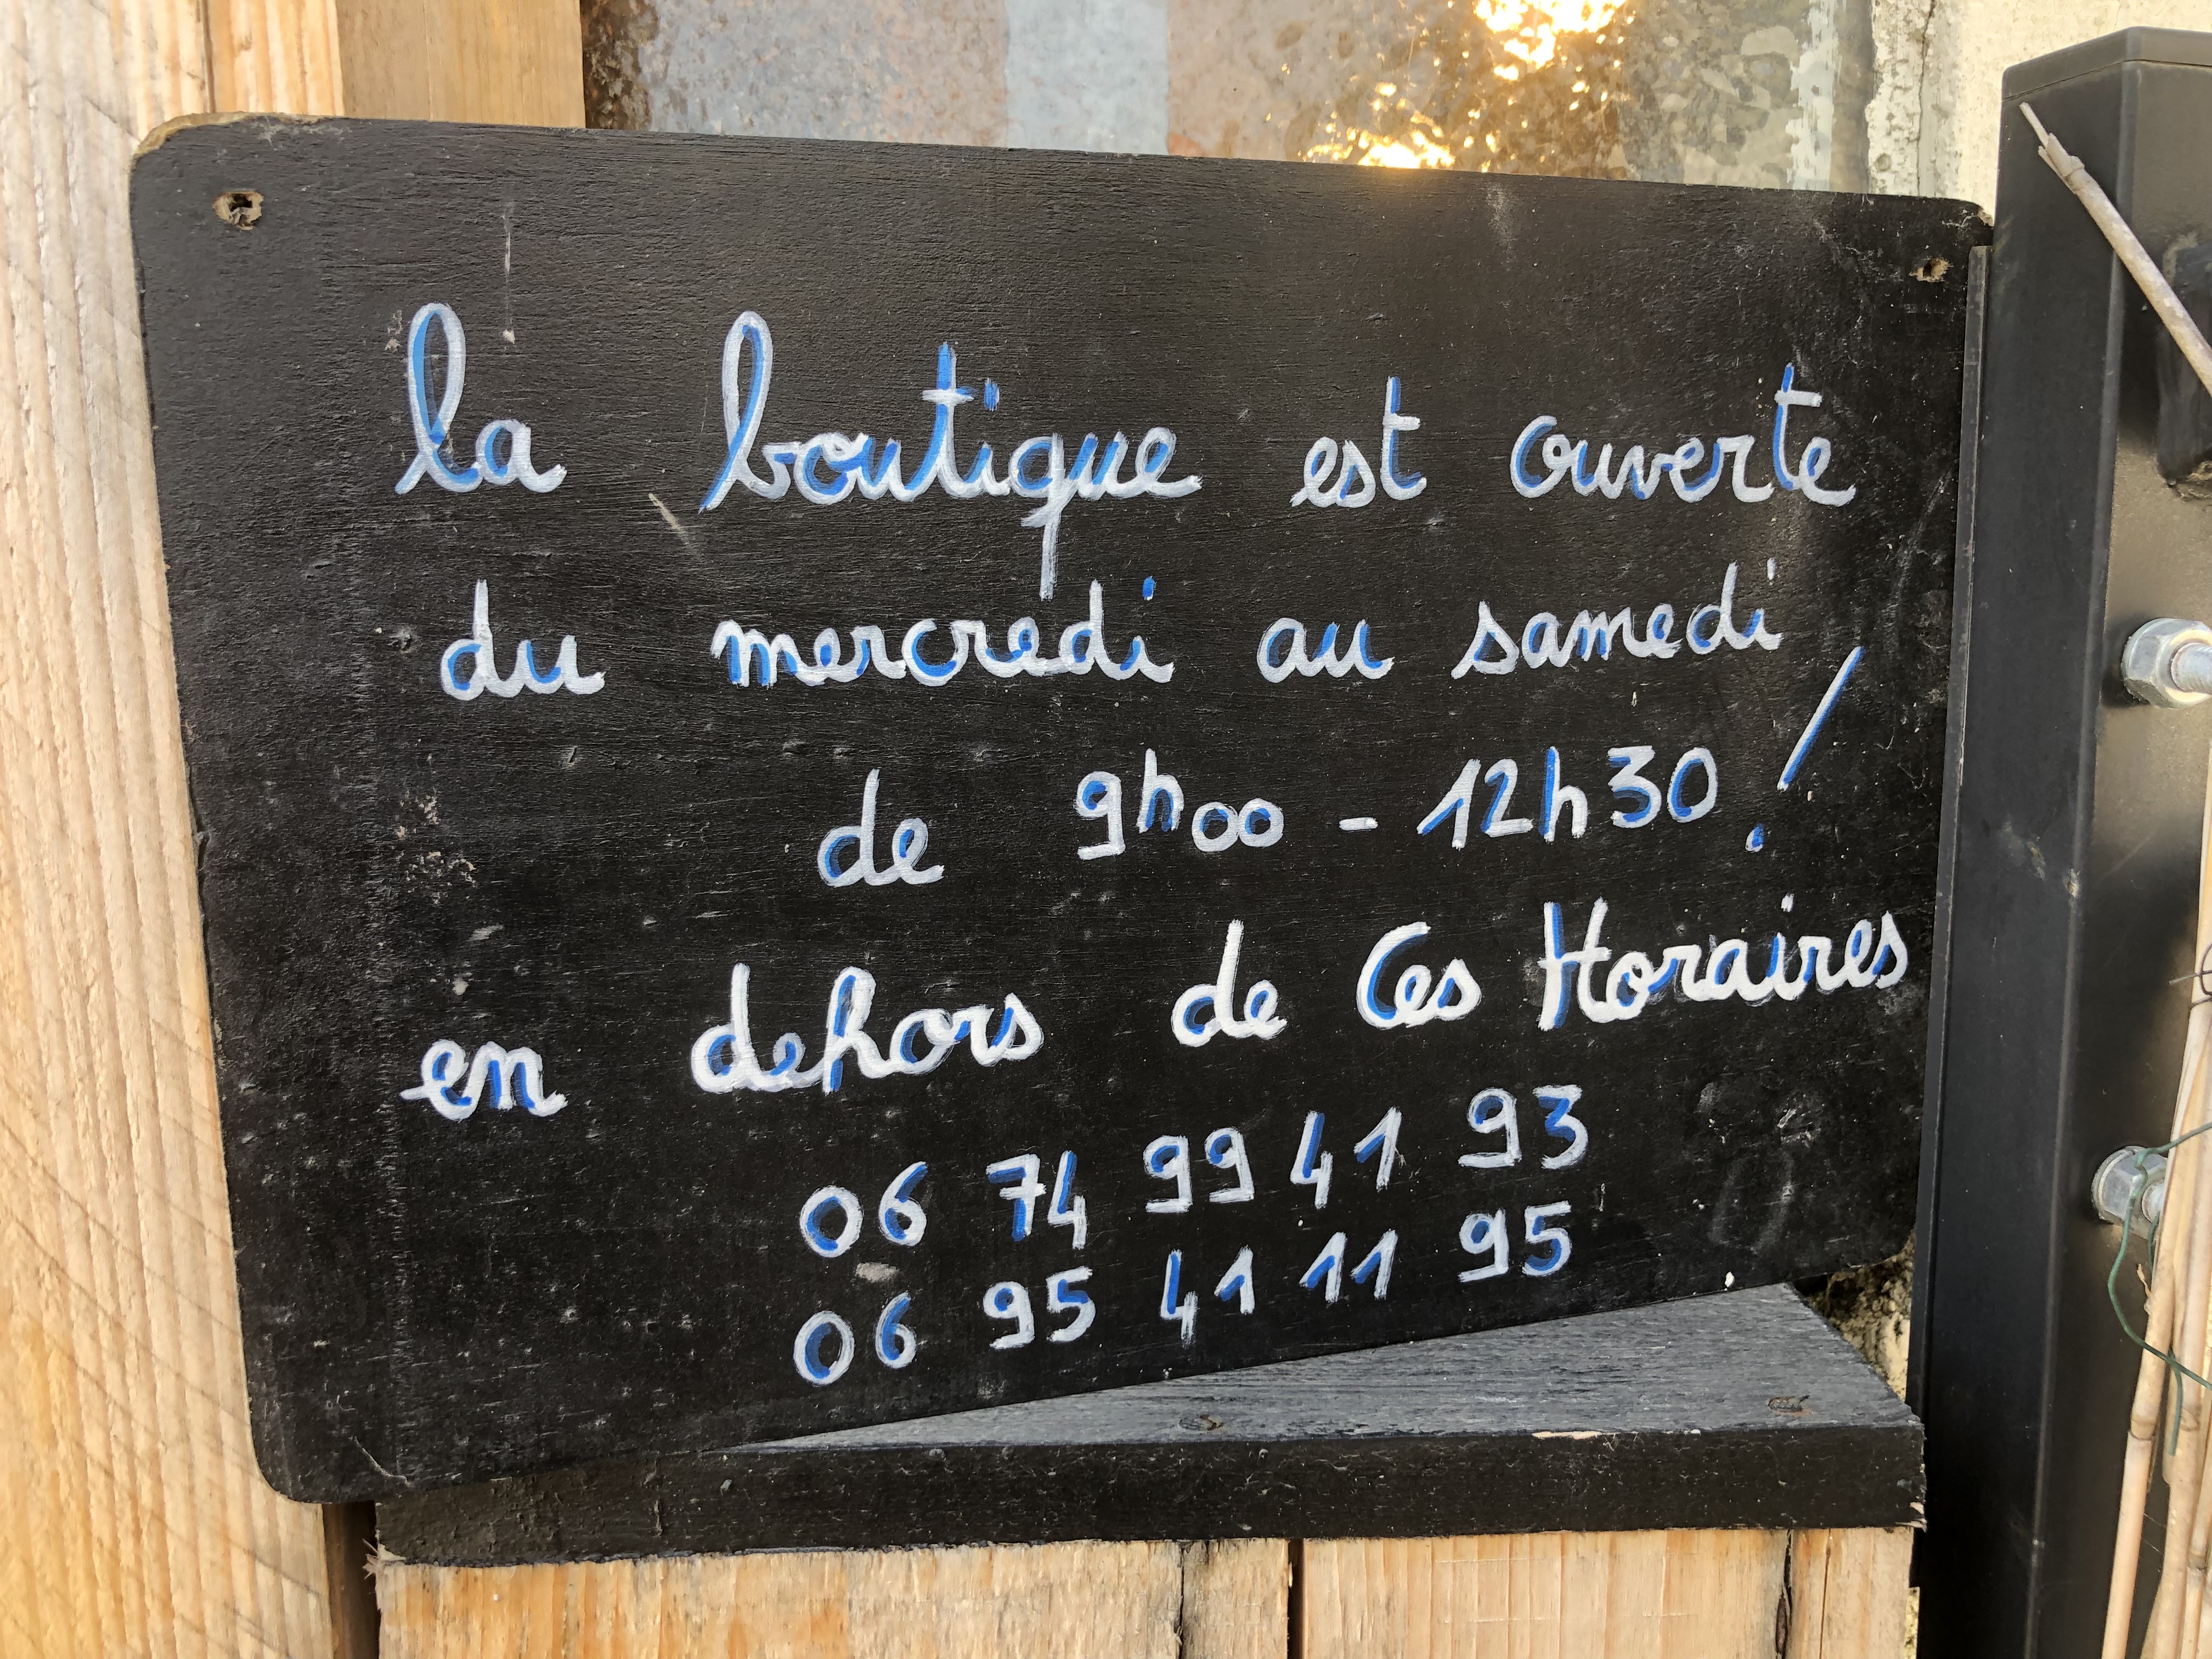 la boutique est ouverte
du mercredi au samedi
de 9h00 - 12h30 !
en dehors de Ces Horaires
06 74 99 41 93
06 95 41 11 95